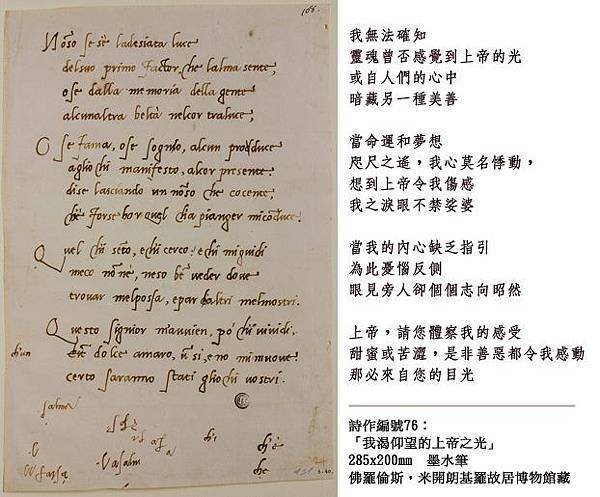 168.
Non so se s'è la desiata luce
del suo primo factor, che l'alma sente,
o se dalla memoria della gente
alcun'altra beltà nel cor traluce;
O se fama, o se sognio, alcun prodduce
agli ochi manifesto, al cor presente
di sé lasciando un non so che cocente
ch'è forse or quel ch'a pianger mi conduce.
Quel ch'i' sento, e ch'i' cerco e chi mi guidi
meco non è, né so ben veder dove
trovar mel possa, e par c'altri mel mostri.
Questo, signior, m'avvien, po' ch'i' vi vidi,
c'un dolce amaro, un sì e no mi muove
certo saranno stati gli ochi vostri.
我無法確知
靈魂曾否感覺到上帝的光
或自人們的心中
暗藏另一種美善
當命運和夢想
咫尺之遙，我心莫名悸動，
想到上帝令我傷感
我之淚眼不禁娑婆
當我的內心缺乏指引
為此憂惱反側
眼見旁人卻個個志向昭然
上帝，請您體察我的感受
甜蜜或苦澀，是非善惡都令我感動
那必來自您的目光
詩作編號76：
「我渴仰望的上帝之光」
285x200mm 墨水筆
佛羅倫斯，米開朗基羅故居博物館藏